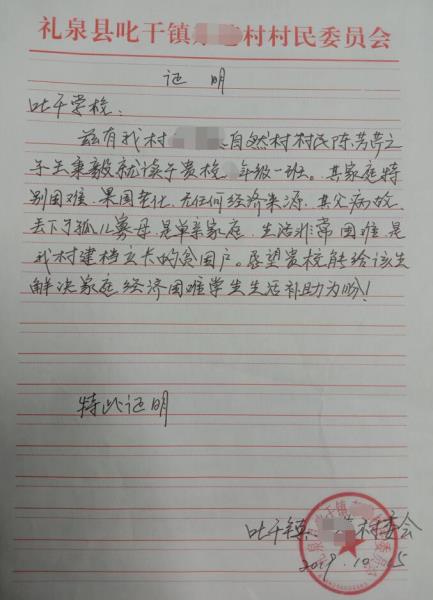 礼泉县叱干镇村村民委员会
证 明
叱干学校：
兹有我村自然村村民陈芳芹之
子王秉毅就读于贵校年级一班。其家庭特
别困难，果园老化，无任何经济来源，其父病故，
丢下了孤儿寡母，是单亲家庭，生活非常困难，是
我村建档立卡的贫困户。愿望贵校能给该生
解决家庭经济困难学生生活补助为盼！
特此证明
叱干镇村委会
2019.10.15